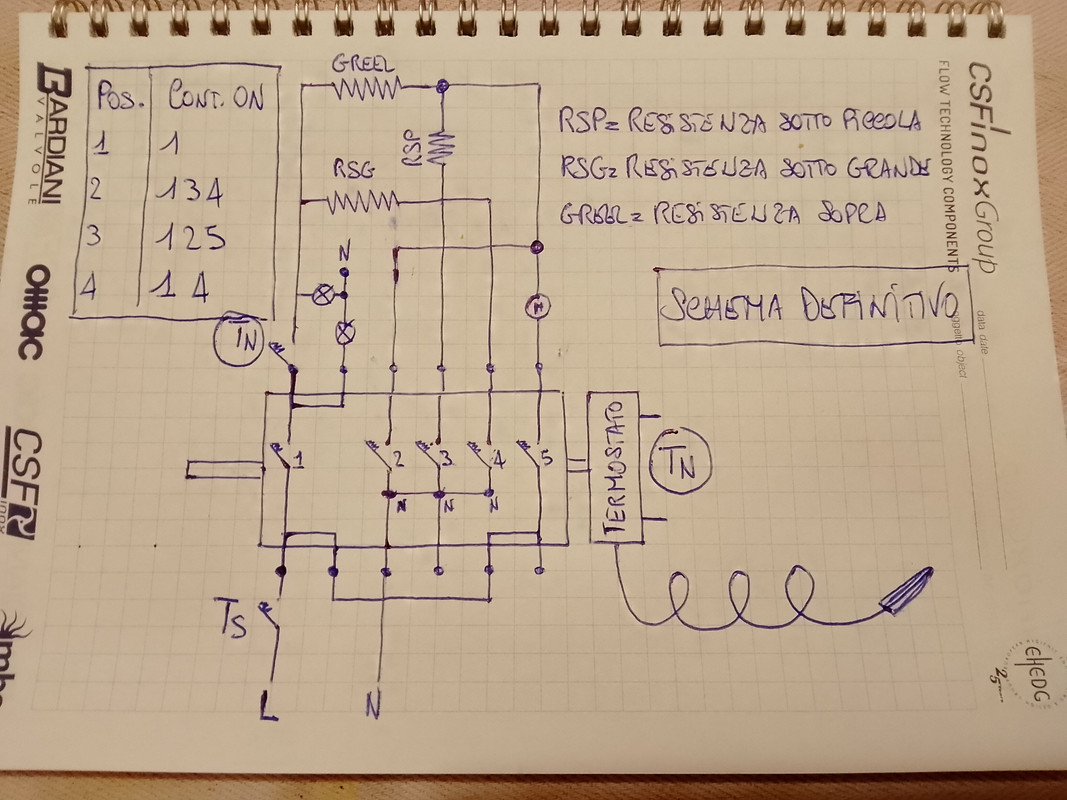 POS. CONT. ON
1 1
2 134
3 125
4 14
GREEL
RSP
RSG
N
TN
RSP= RESISTENZA SOTTO PICCOLA
RSG= RESISTENZA SOTTO GRANDE
GREEL= RESISTENZA SOPRA
SCHEMA DEFINITIVO
1 2 3 4 5
N N N
TERMOSTATO
TN
TS
L
N
BARDIANI
VALVOLE
OMAC
CSF
inox
CSFInoxGroup
FLOW TECHNOLOGY COMPONENTS
data date
oggetto object
EHEDG